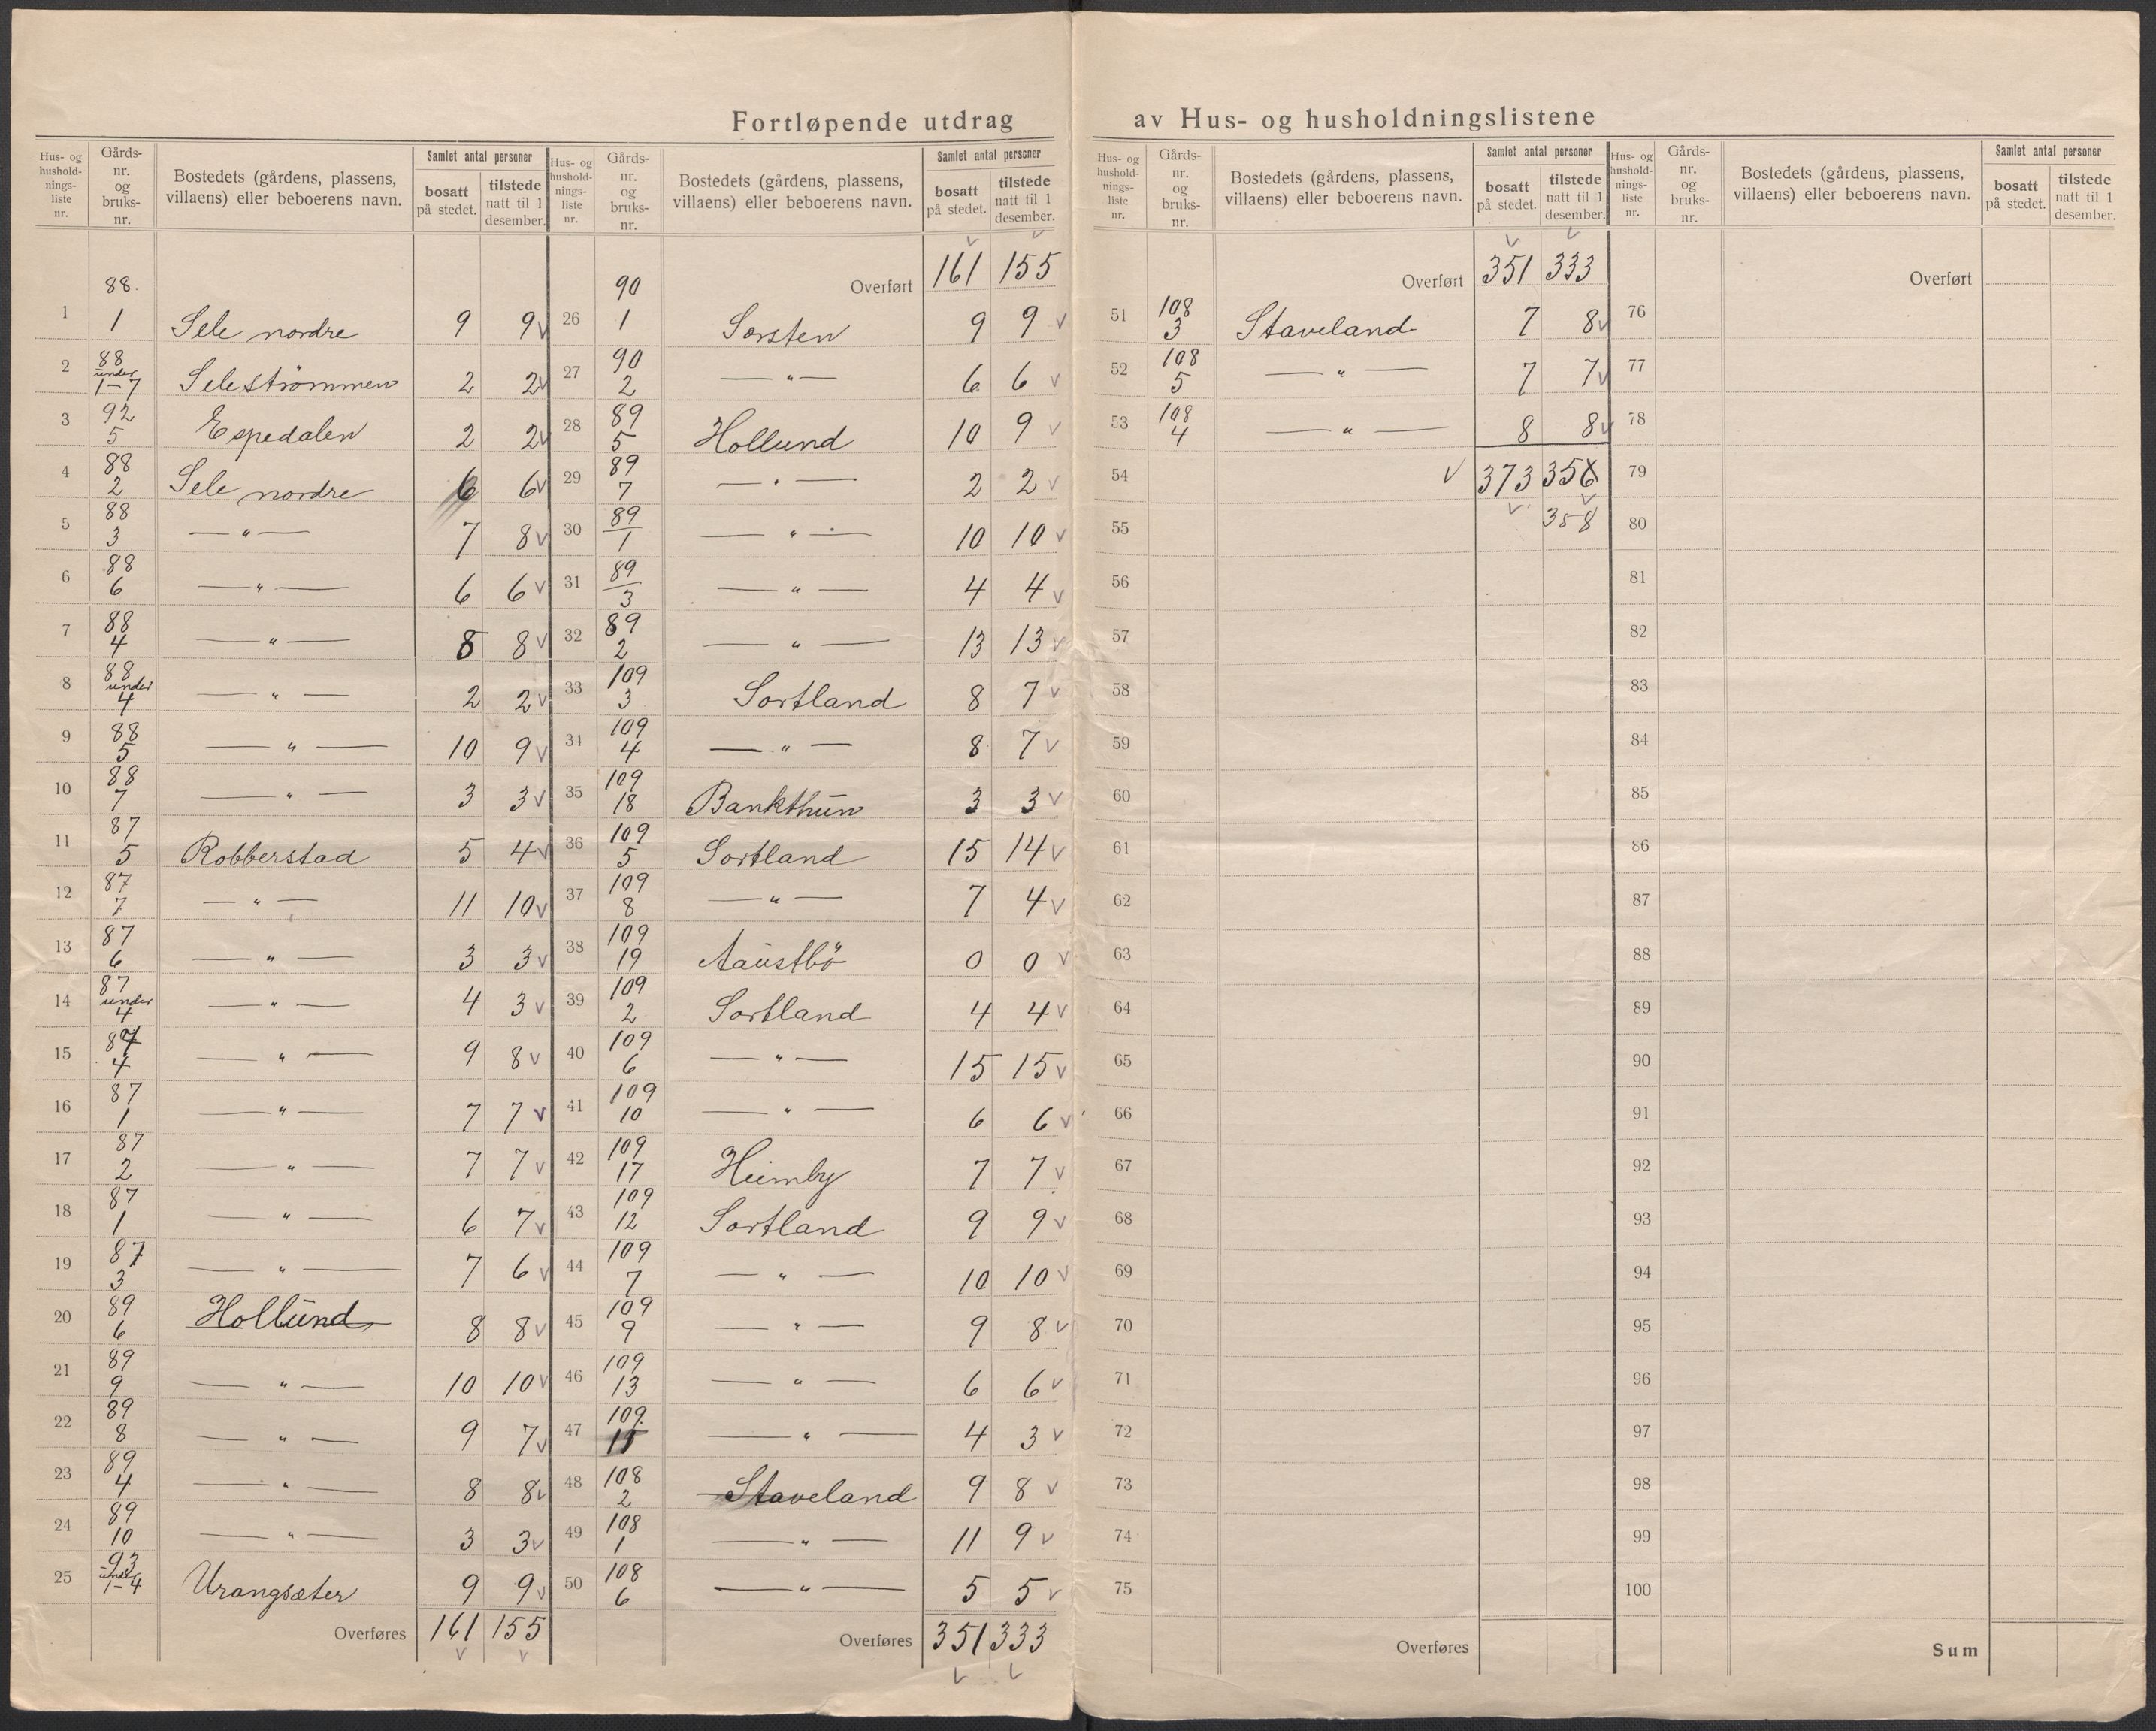 Fortløpende utdrag av Hus- og husholdningslistene
Hus- og hushold-nings-liste nr. Gårds-nr. og bruks-nr. Bostedets (gårdens, plassens, villaens) eller beboerens navn. Samlet antal personer bosatt på stedet. tilstede natt til 1 desember.
1 88. 1 Sele nordre 9 9 v
2 88 under 1-7 Seleströmmen 2 2 v
3 92 5 Espedalen 2 2 v
4 88 2 Sele nordre 6 6 v
5 88 3 — " — 7 8 v
6 88 6 — " — 6 6 v
7 88 4 — " — 8 8 v
8 88 under 4 — " — 2 2 v
9 88 5 — " — 10 9 v
10 88 7 — " — 3 3 v
11 87 5 Robberstad 5 4 v
12 87 7 — " — 11 10 v
13 87 6 — " — 3 3 v
14 87 under 4 — " — 4 3 v
15 87 4 — " — 9 8 v
16 87 1 — " — 7 7 v
17 87 2 — " — 7 7 v
18 87 1 — " — 6 7 v
19 87 3 — " — 7 6 v
20 89 6 Hollund 8 8 v
21 89 9 — " — 10 10 v
22 89 8 — " — 9 7 v
23 89 4 — " — 8 8 v
24 89 10 — " — 3 3 v
25 93 under 1-4 Urangsæter 9 9 v
Overføres 161 155
v v
Hus- og hushold-nings-liste nr. Gårds-nr. og bruks-nr. Bostedets (gårdens, plassens, villaens) eller beboerens navn. Samlet antal personer bosatt på stedet. tilstede natt til 1 desember.
v v
Overført 161 155
26 90 1 Sørsten 9 9 v
27 90 2 — " — 6 6 v
28 89 5 Hollund 10 9 v
29 89 7 — " — 2 2 v
30 89 1 — " — 10 10 v
31 89 3 — " — 4 4 v
32 89 2 — " — 13 13 v
33 109 3 Sortland 8 7 v
34 109 4 — " — 8 7 v
35 109 18 Bankthun 3 3 v
36 109 5 Sortland 15 14 v
37 109 8 — " — 7 4 v
38 109 19 Aaustbö 0 0 v
39 109 2 Sortland 4 4 v
40 109 6 — " — 15 15 v
41 109 10 — " — 6 6 v
42 109 17 Heimby 7 7 v
43 109 12 Sortland 9 9 v
44 109 7 — " — 10 10 v
45 109 9 — " — 9 8 v
46 109 13 — " — 6 6 v
47 109. 15 — " — 4 3 v
48 108 2 Staveland 9 8 v
49 108 1 — " — 11 9 v
50 108 6 — " — 5 5 v
Overføres 351 333
v v
Hus- og hushold-nings-liste nr. Gårds-nr. og bruks-nr. Bostedets (gårdens, plassens, villaens) eller beboerens navn. Samlet antal personer bosatt på stedet. tilstede natt til 1 desember.
v v
Overført 351 333
51 108 3 Staveland 7 8 v
52 108 5 — " — 7 7 v
53 108 4 — " — 8 8 v
54 v 373 356
55 v v 358
56
57
58
59
60
61
62
63
64
65
66
67
68
69
70
71
72
73
74
75
Overføres
Hus- og hushold-nings-liste nr. Gårds-nr. og bruks-nr. Bostedets (gårdens, plassens, villaens) eller beboerens navn. Samlet antal personer bosatt på stedet. tilstede natt til 1 desember.
Overført
76
77
78
79
80
81
82
83
84
85
86
87
88
89
90
91
92
93
94
95
96
97
98
99
100
Sum